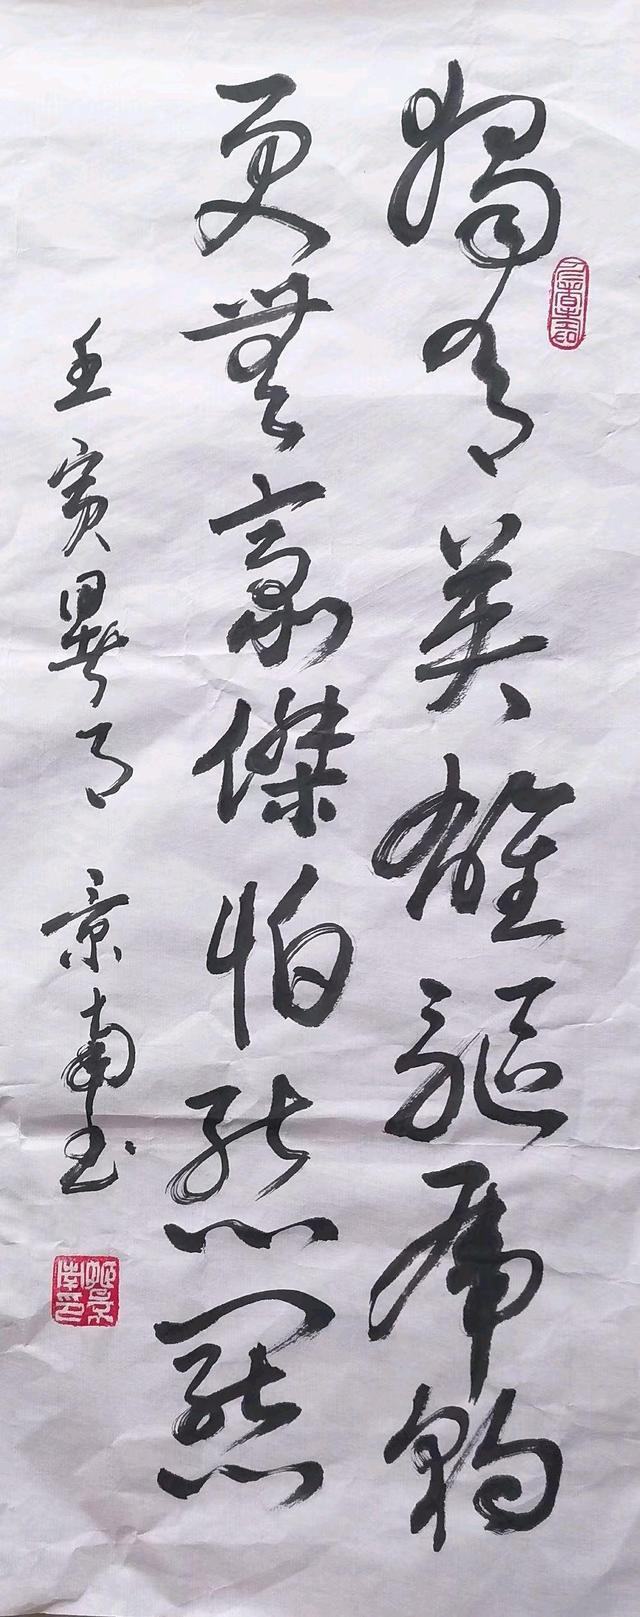 獨有英雄驅虎豹
更無豪傑怕熊羆
壬寅暑月 景南書